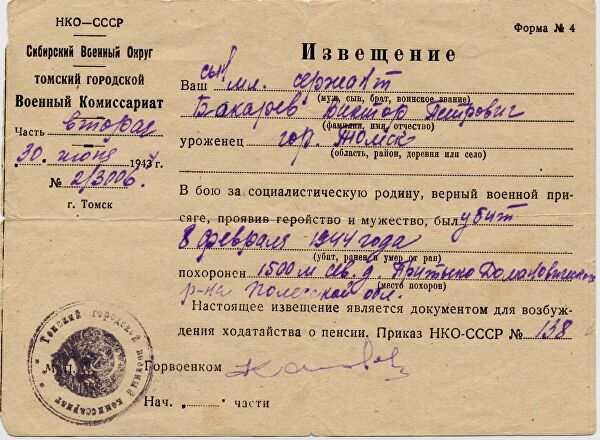 НКО—СССР
Сибирский Военный Округ
ТОМСКИЙ ГОРОДСКОЙ
Военный Комиссариат
Часть вторая
30 июня 1944 г.
№ 2/3006.
г. Томск
Форма № 4
Извещение
Ваш сын мл. сержант
(муж, сын, брат, воинское звание)
Бакарев Виктор Петрович
(фамилия, имя, отчество)
уроженец гор. Томск
(область, район, деревня или село)
В бою за социалистическую родину, верный военной при-
сяге, проявив геройство и мужество, был убит
8 февраля 1944 года
(убит, ранен и умер от ран)
похоронен 1500 м сев. д. Притыка Домановичского
(место похорон)
р-на Полесской обл.
Настоящее извещение является документом для возбуж-
дения ходатайства о пенсии. Приказ НКО-СССР № 138
М. П. Горвоенком
Нач. части
Томский городской военный комиссариат